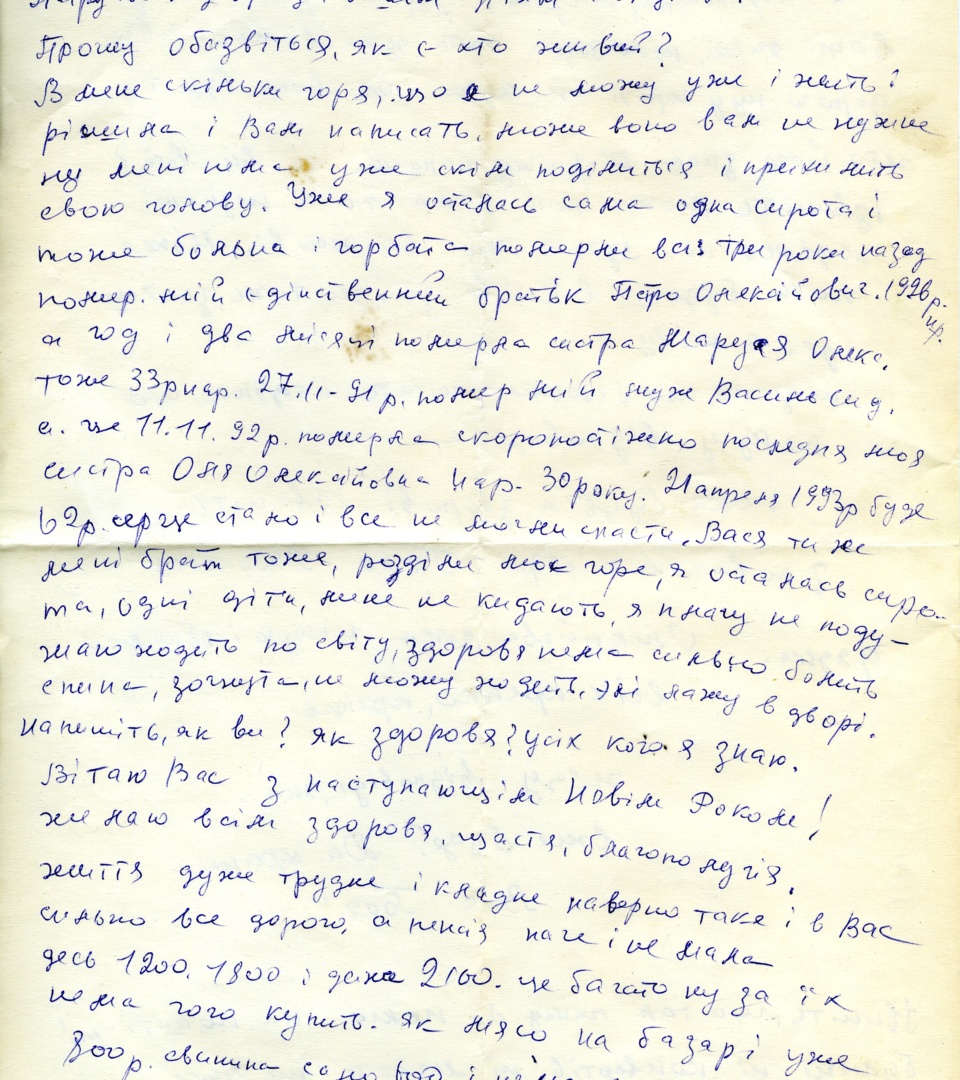 Прошу обазвіться, як є хто живий?
В мене скільки горя, що я не можу уже і жить і
рішила і Вам написать. може воно вам не нужне
ну мені нема уже скім поділиться і прихилить
свою голову. Уже я осталась сама одна сирота і
тоже больна і горбата померли всі три роки назад
помер. мій єдінственний братік Петро Олекайович. 1926 р.
нр.
а год і два місяці померла систра Маруся Олекс.
тоже 33 р нар. 27.11-91 р. помер мій муж Василь Сид.
а. це 11.11.92 р. померла скоропостіжно послєдня моя
систра Оля Олекайовна нар. 30 року. 21 апреля 1993 р буде
62 р. серце стало і все не могли спасти. Вася ти же
мені брат тоже, розділи моє горе, я осталась сиро-
та, одні діти, мене не кидають, я плачу не поду-
маю ходить по світу, здоровя нема сильно болить
спина, зогнута, не можу ходить. лажу в дворі.
Напишіть, як ви? як здоровя? усіх кого я знаю.
Вітаю Вас з наступающім Новім Роком!
желаю всім здоровя, щастя, благополучія.
життя дуже трудне і кладне наверно таке і в Вас
сильно все дорого, а пенсія наче і не мала
десь 1200. 1800 і даже 2100. це багато ну за їх
нема чого купить. як мясо на базарі уже
800 р. свинина сало і